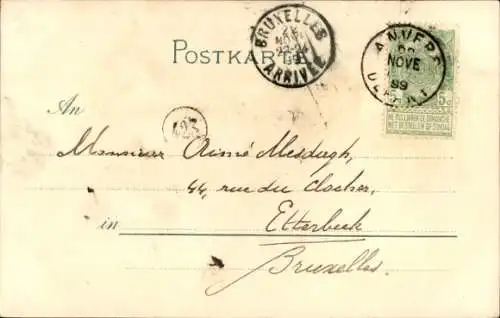 POSTKARTE
BRUXELLES
NOVE
ARRIVÉE
ANVERS
NOVE
99
DÉPART
NE PAS LIVRER LE DIMANCHE
NIET BESTELLEN OP ZONDAG
An
423
Monsieur Aimé Mesdagh,
44, rue du Clocher,
in Etterbeek
Bruxelles.